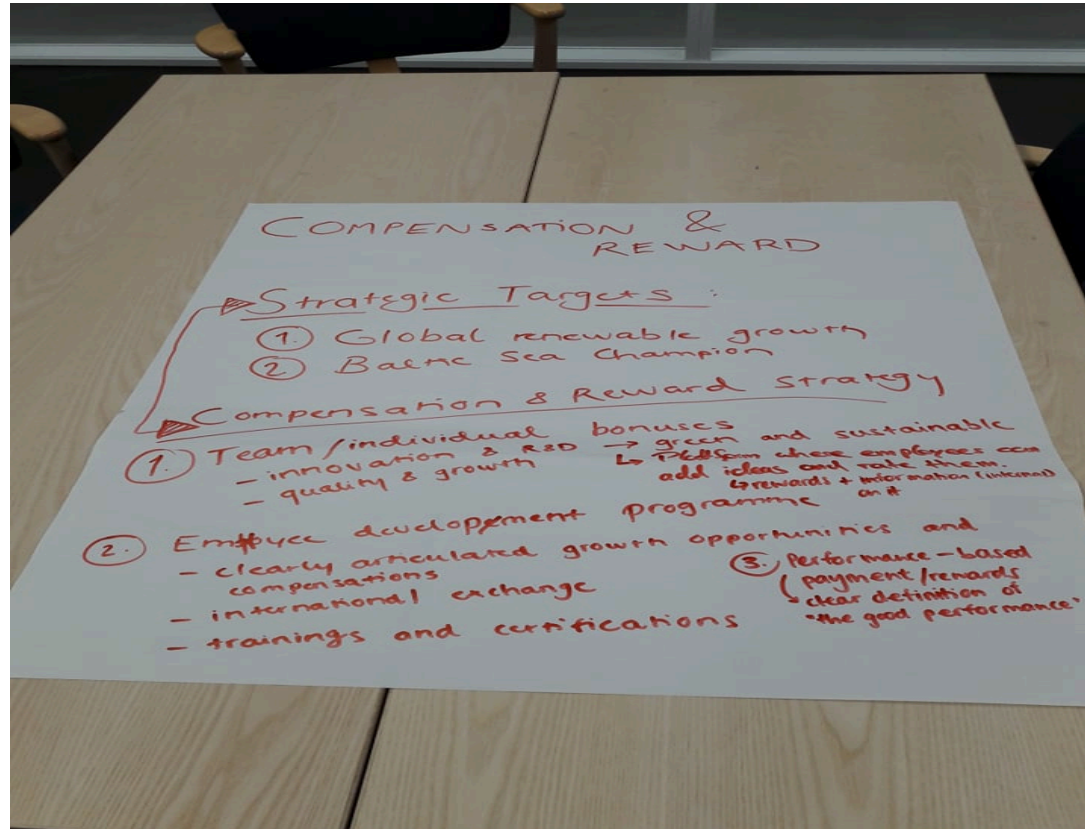 COMPENSATION &
REWARD
Strategic Targets :
1. Global renewable growth
2. Baltic Sea Champion
Compensation & Reward Strategy
1. Team/individual bonuses
- innovation & R&D → green and sustainable
- quality & growth
↳ Platform where employees can
add ideas and rate them.
↳ rewards + information (internal)
on it
2. Employee development programme
- clearly articulated growth opportunities and
compensations
- international exchange
- trainings and certifications
3. Performance-based
payment/rewards
clear definition of
"the good performance"